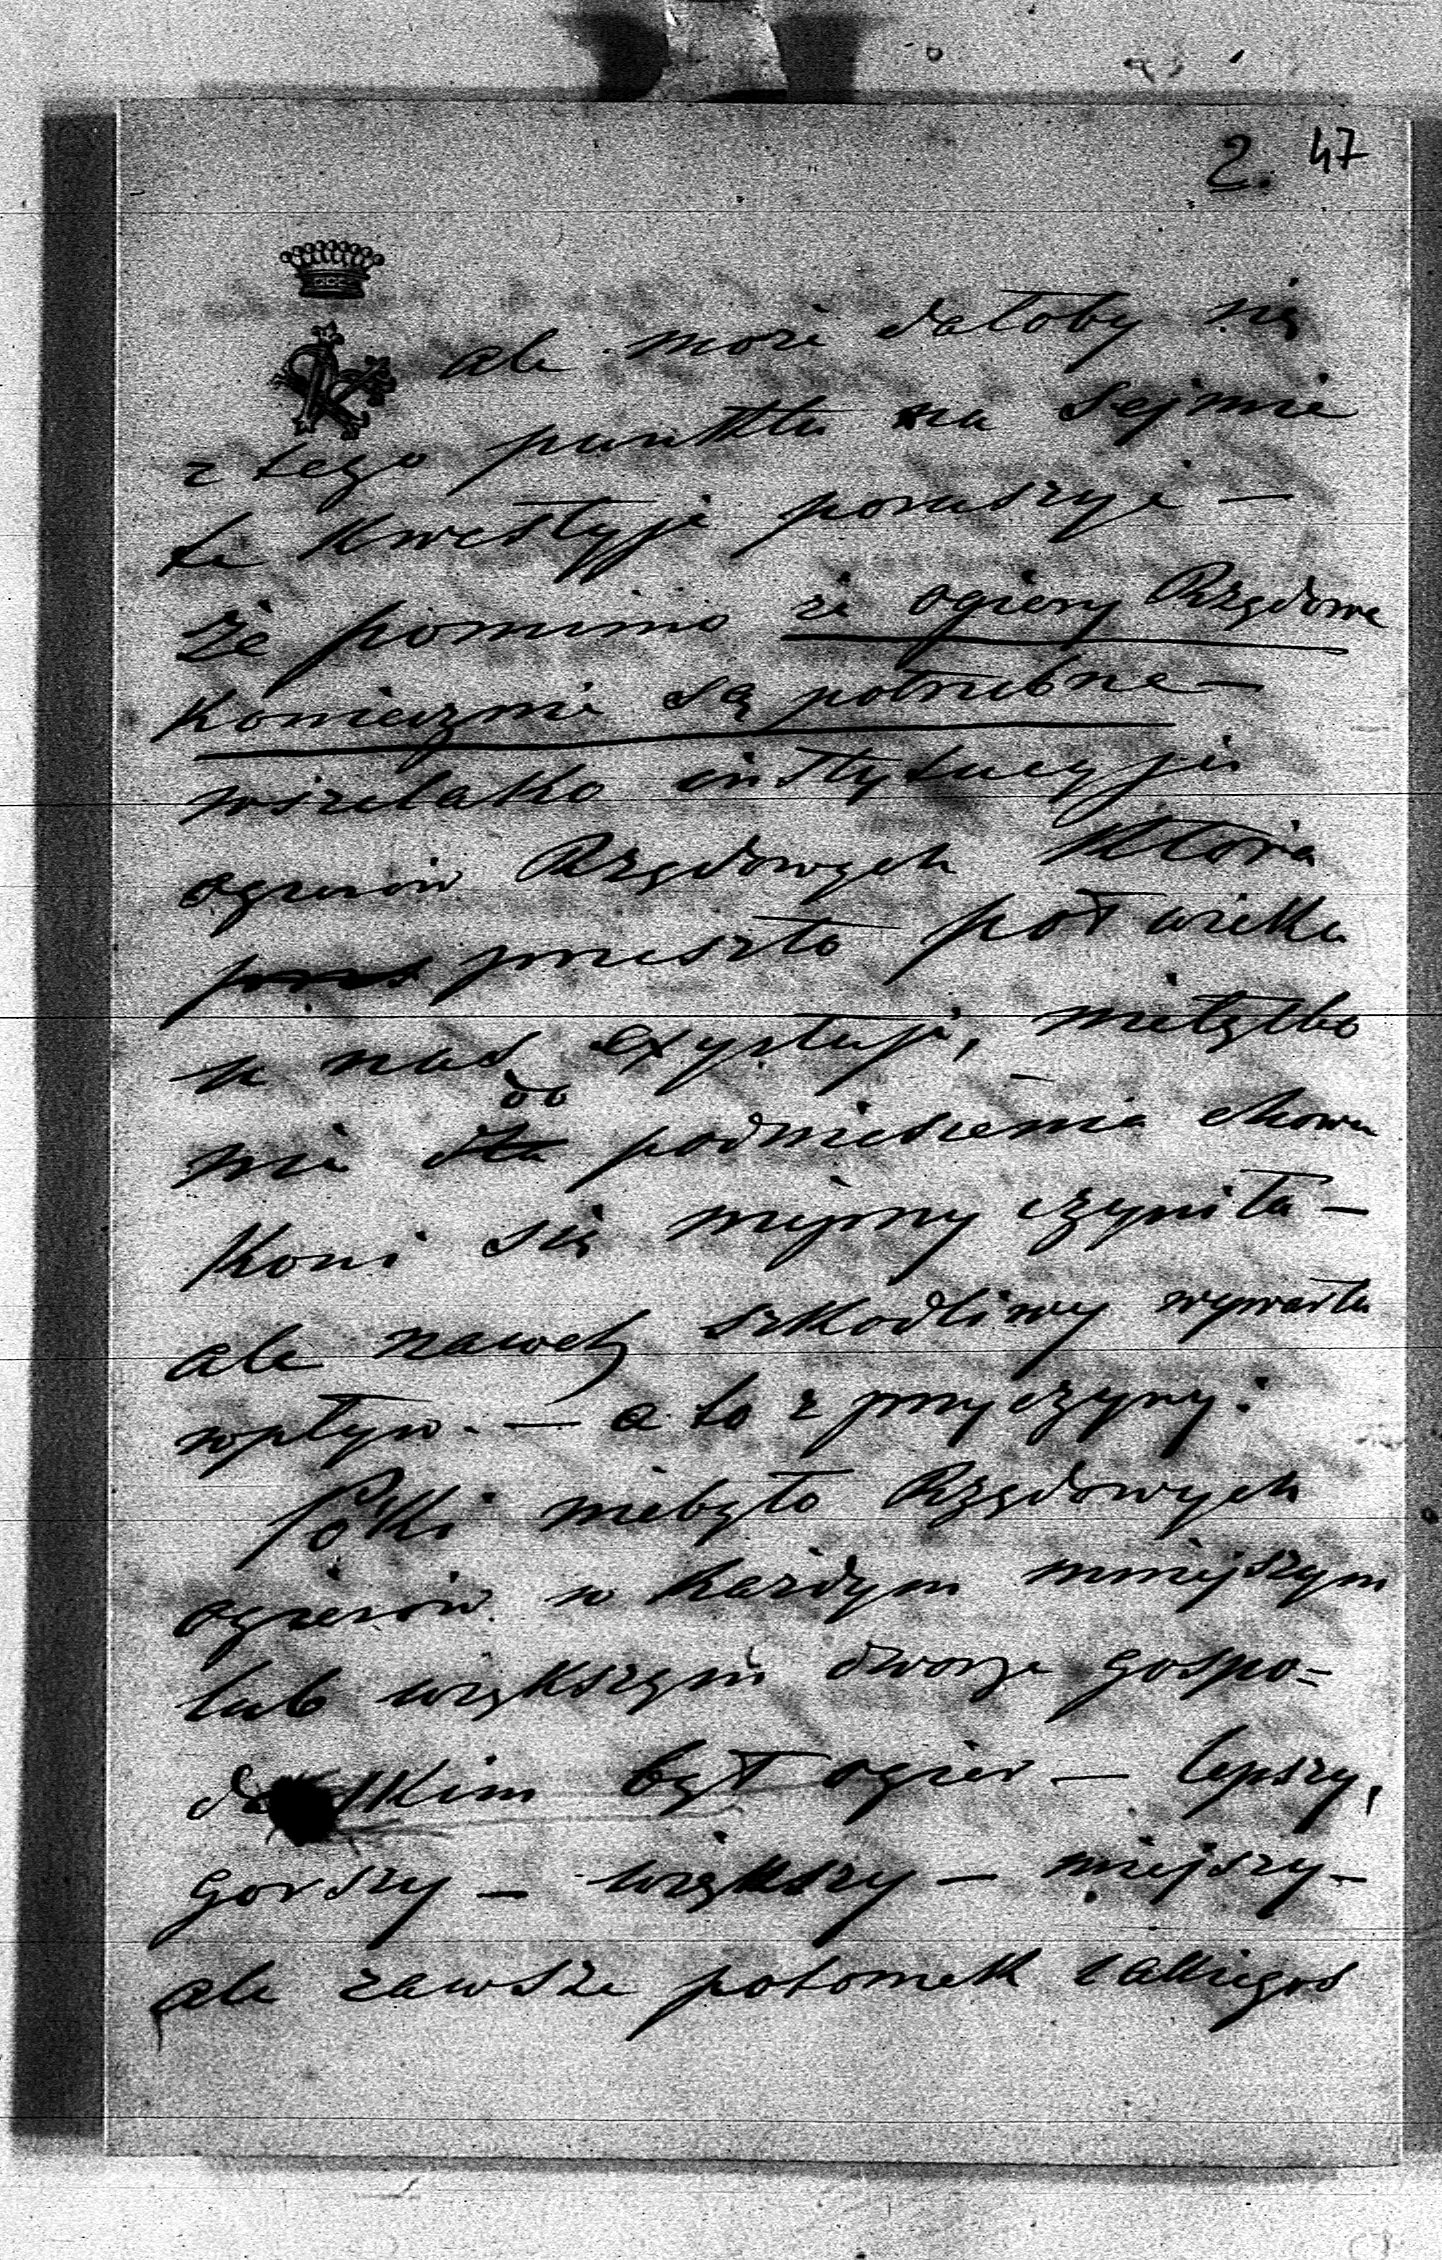 2. 47
ale może dałoby się
z tego punktu na Sejmie
te kwestyję poruszyć —
że pomimo że ogiery Rządowe
koniecznie są potrzebne —
wszelako instytucyja
ogierów Rządowych która
przeszło pół wieku
u nas exystuje, nietylko
do
nie dla podniesienia chowu
koni się nie czyniła —
ale nawet szkodliwy wywarła
wpływ. — a to z przyczyny:
Póki niebyło Rządowych
ogierów w każdym mniejszym
lub większym dworze gospo=
darskim był ogier — lepszy,
gorszy — większy — miejszy —
ale zawsze potomek jakiegoś